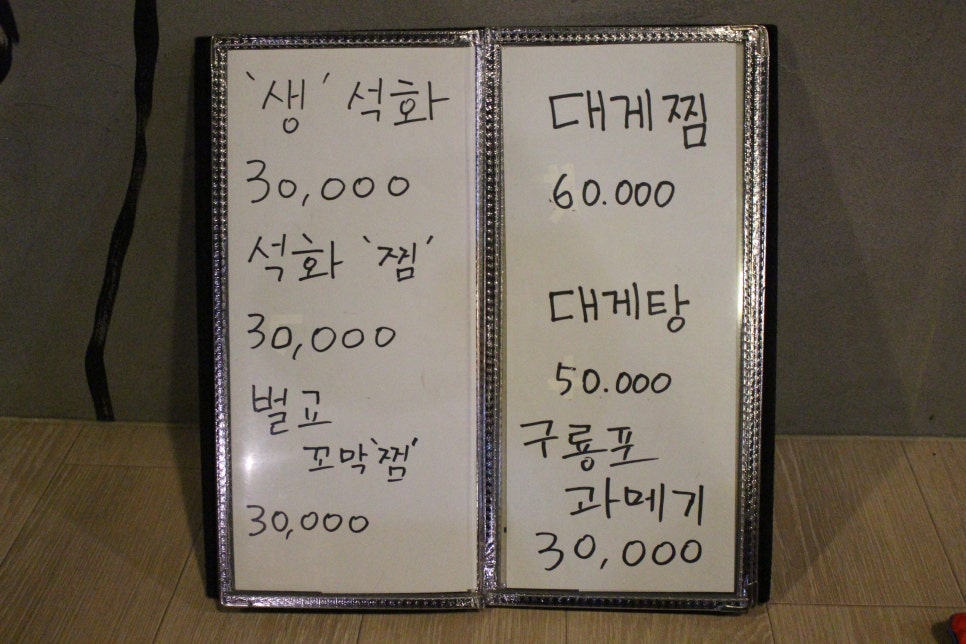 ‘생’ 석화
30,000
석화 ‘찜’
30,000
벌교
꼬막‘찜’
30,000
대게찜
60.000
대게탕
50.000
구룡포
과메기
30,000